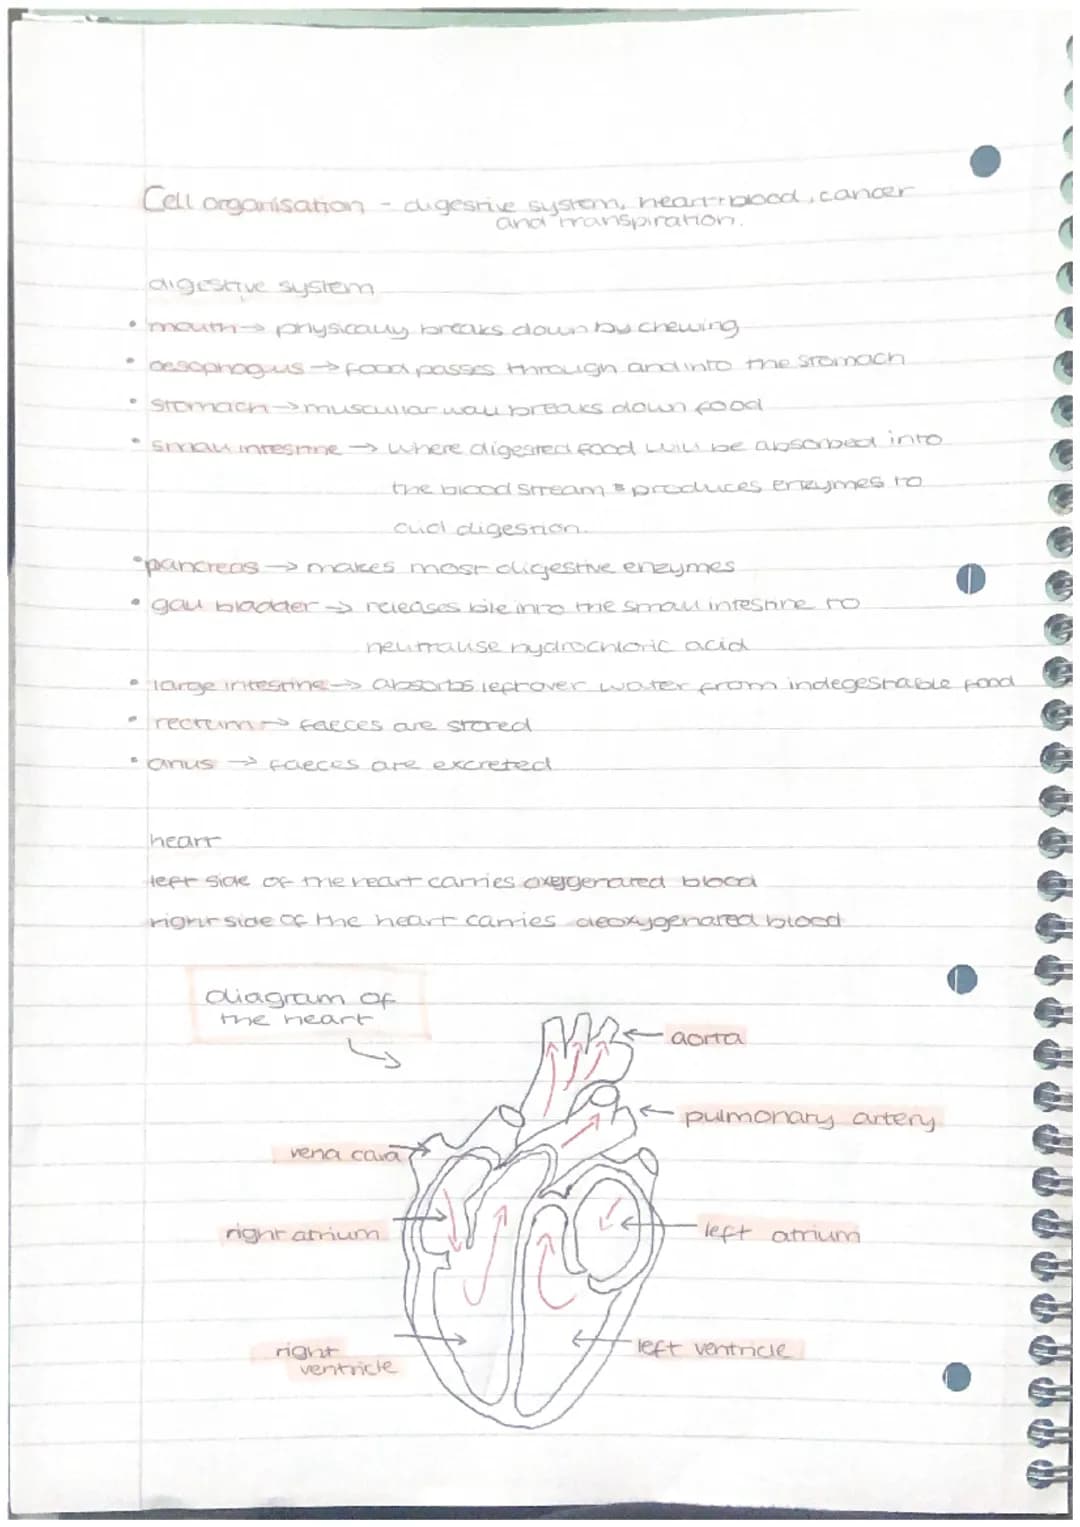 Cell organisation - digestive system, heart+blood, cancer
and transpiration.
digestive system
• mouth → physically breaks down by chewing
• oesophagus → food passes through and into the stomach
• stomach → muscular wall breaks down food
• small intestine → where digested food will be absorbed into
the blood stream & produces enzymes to
aid digestion.
• pancreas → makes most digestive enzymes
• gall bladder → releases bile into the small intestine to
neutralise hydrochloric acid
• large intestine → absorbs leftover water from indegestable food
• rectum → faeces are stored
• anus → faeces are excreted
heart
left side of the heart carries oxygenated blood
right side of the heart carries deoxygenated blood
diagram of
the heart
aorta
pulmonary artery
vena cava
right atrium
left atrium
right
ventricle
left ventricle